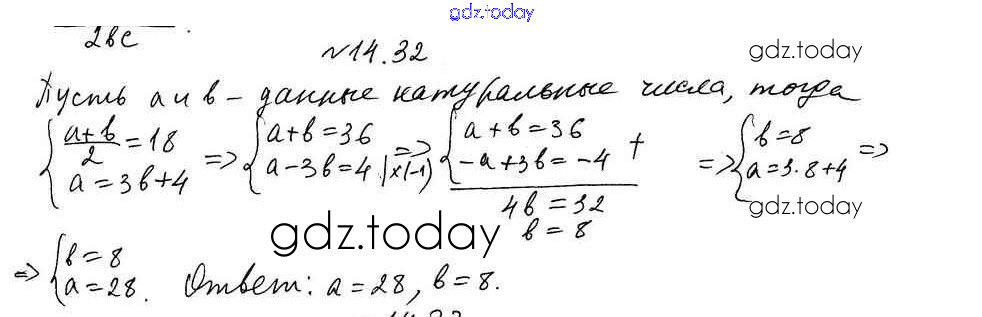 gdz.today
2bc
№14.32
gdz.today
Пусть a и b – данные натуральные числа, тогда
{ (a+b)/2 = 18 => { a+b=36 => { a+b=36 + => { b=8 =>
a=3b+4 a-3b=4 |×(-1) -a+3b=-4 a=3·8+4
4b=32
gdz.today
b=8
gdz.today
=> { b=8
a=28. Ответ: a=28, b=8.